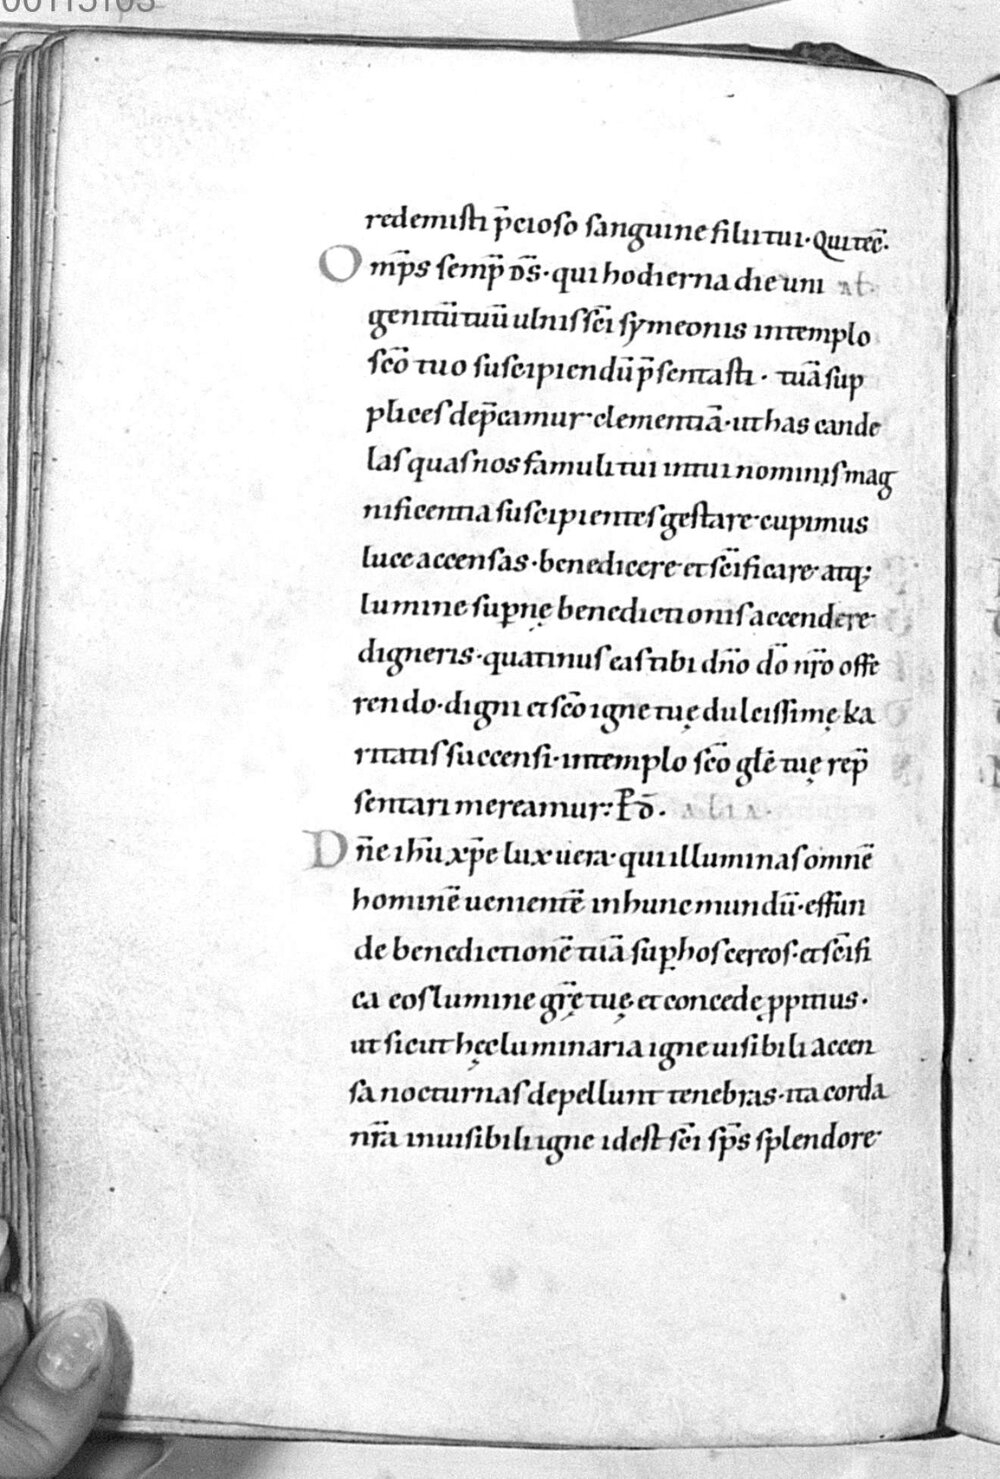 00115103
redemisti p̄cioso sanguine filii tui· Qui tec̄·
Om̄ps semp̄ d̄s· qui hodierna die uni al̄·
genitū tuū ulnis sc̄i symeonis in templo
sc̄o tuo suscipiendū p̄sentasti· tuā sup
plices dep̄camur· clementiā· ut has cande
las quas nos famuli tui in tui nominis mag
nificentia suscipientes gestare· cupimus
luce accensas· benedicere· et sc̄ificare· atq;
lumine sup̱nę benedictionis accendere·
digneris· quatinus eas tibi dn̄o dō nr̄o offe
rendo· digni et sc̄o igne tuę dulcissimę ka
ritatis succensi· in templo sc̄o gl̄ę tuę rep̄
sentari mereamur: P̄ d̄. Alia·
Dn̄e ih̄u xp̄e lux uera· qui illuminas omnē
hominē uenientē in hunc mundū· effun
de benedictionē tuā sup̱ hos cereos· et sc̄ifi
ca eos lumine gr̄ę tuę· et concede ꝓpitius·
ut sicut hęc luminaria igne uisibili accen
sa nocturnas depellunt tenebras· ita corda
nr̄a inuisibili igne id est sc̄i sp̄s splendore·